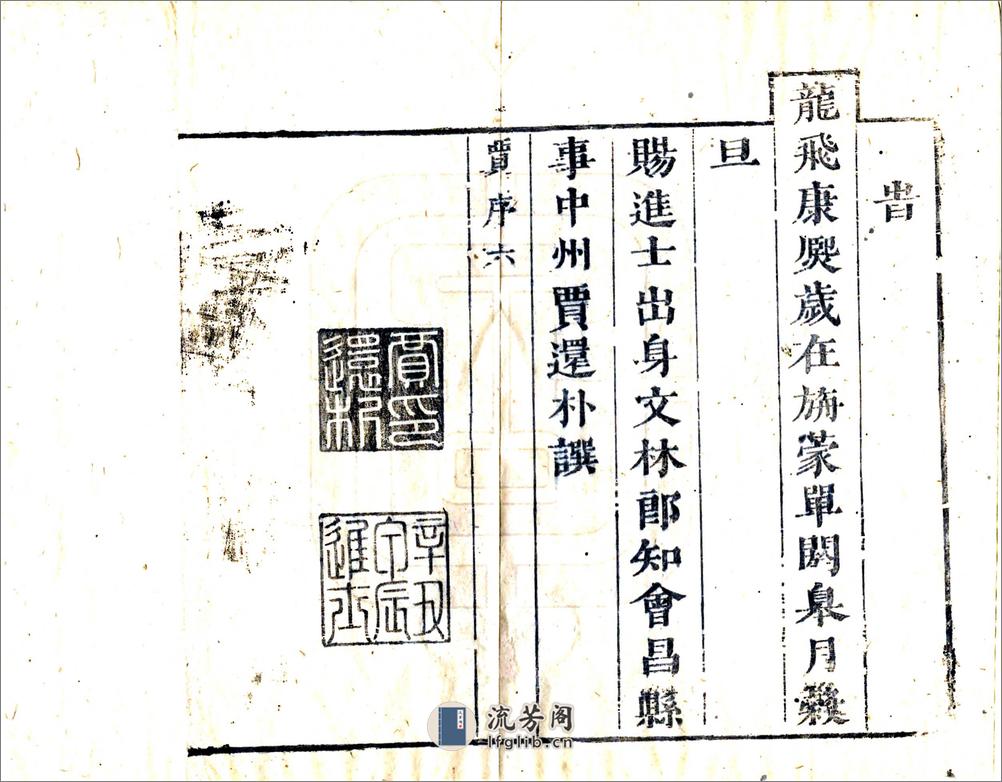 旹
龍飛康熈歲在旃蒙單閼皋月穀
旦
賜進士出身文林郎知會昌縣
事中州賈還朴譔
賈序六
賈印還朴
辛丑辰進士
流芳阁
lfglib.cn